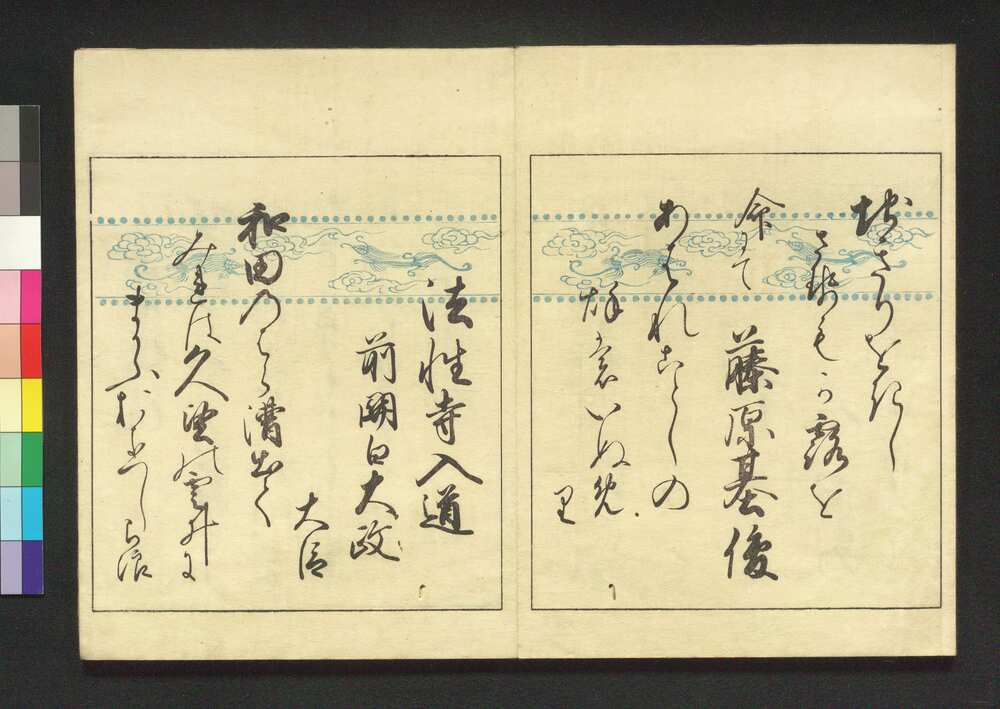 ちきりをきし
させもか露を
命にて
藤原基俊
あはれことしの
秋もいぬめ
り
法性寺入道
前関白大政
大臣
和田のはら漕出て
みれは久堅の雲井に
まかふおきつしら浪